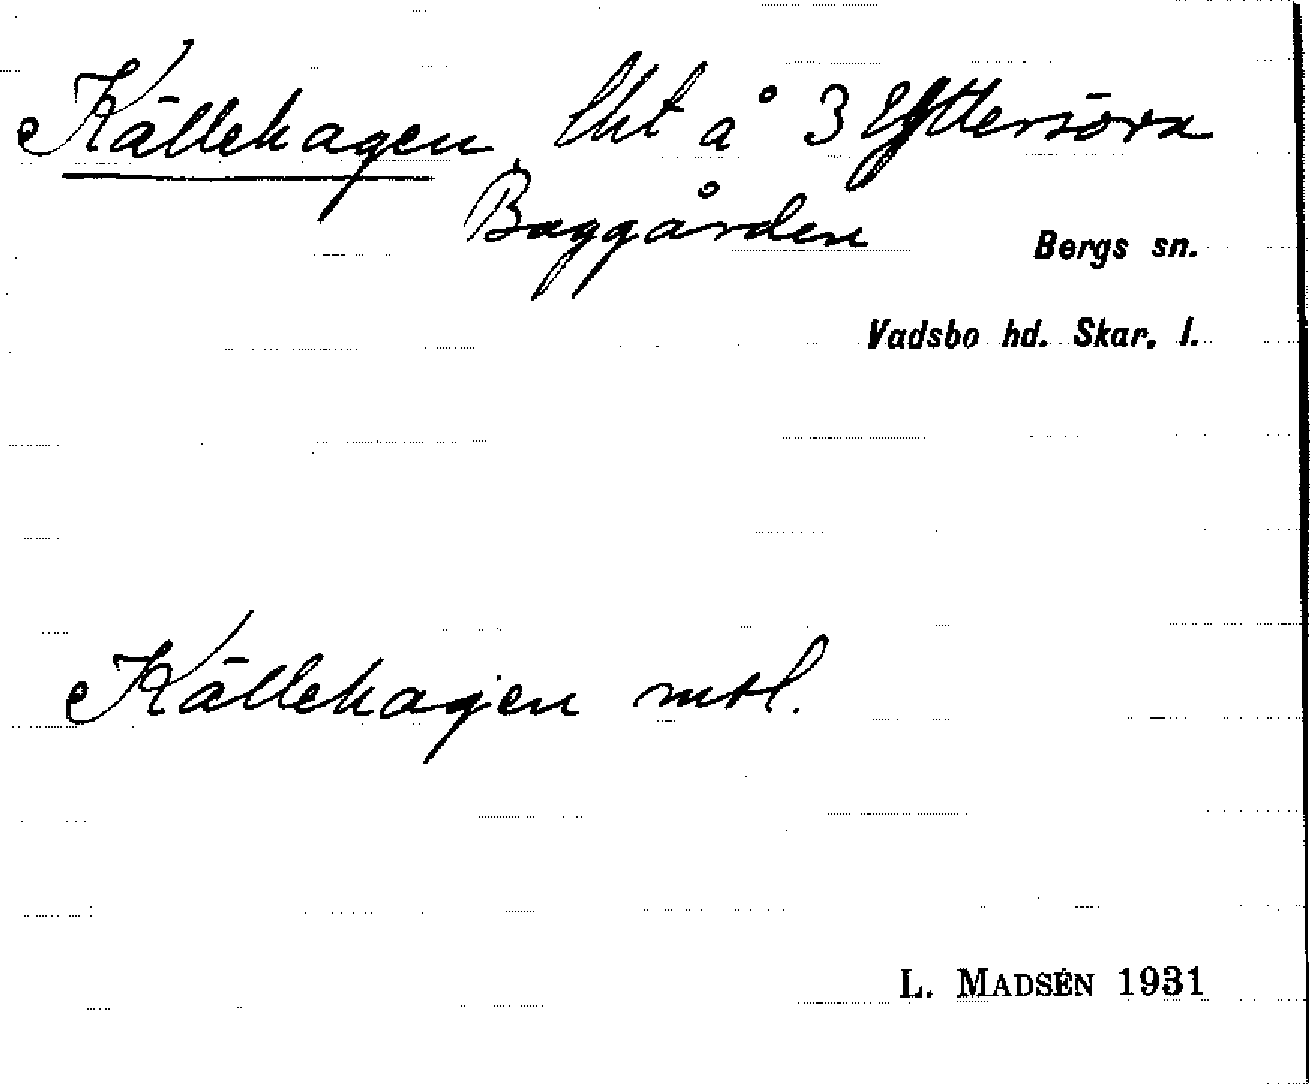 Källehagen, lht å 3 Yttersöra
Baggården
Bergs sn.
Vadsbo hd. Skar. l.
Källehagen mtl.
L. MADSÉN 1931